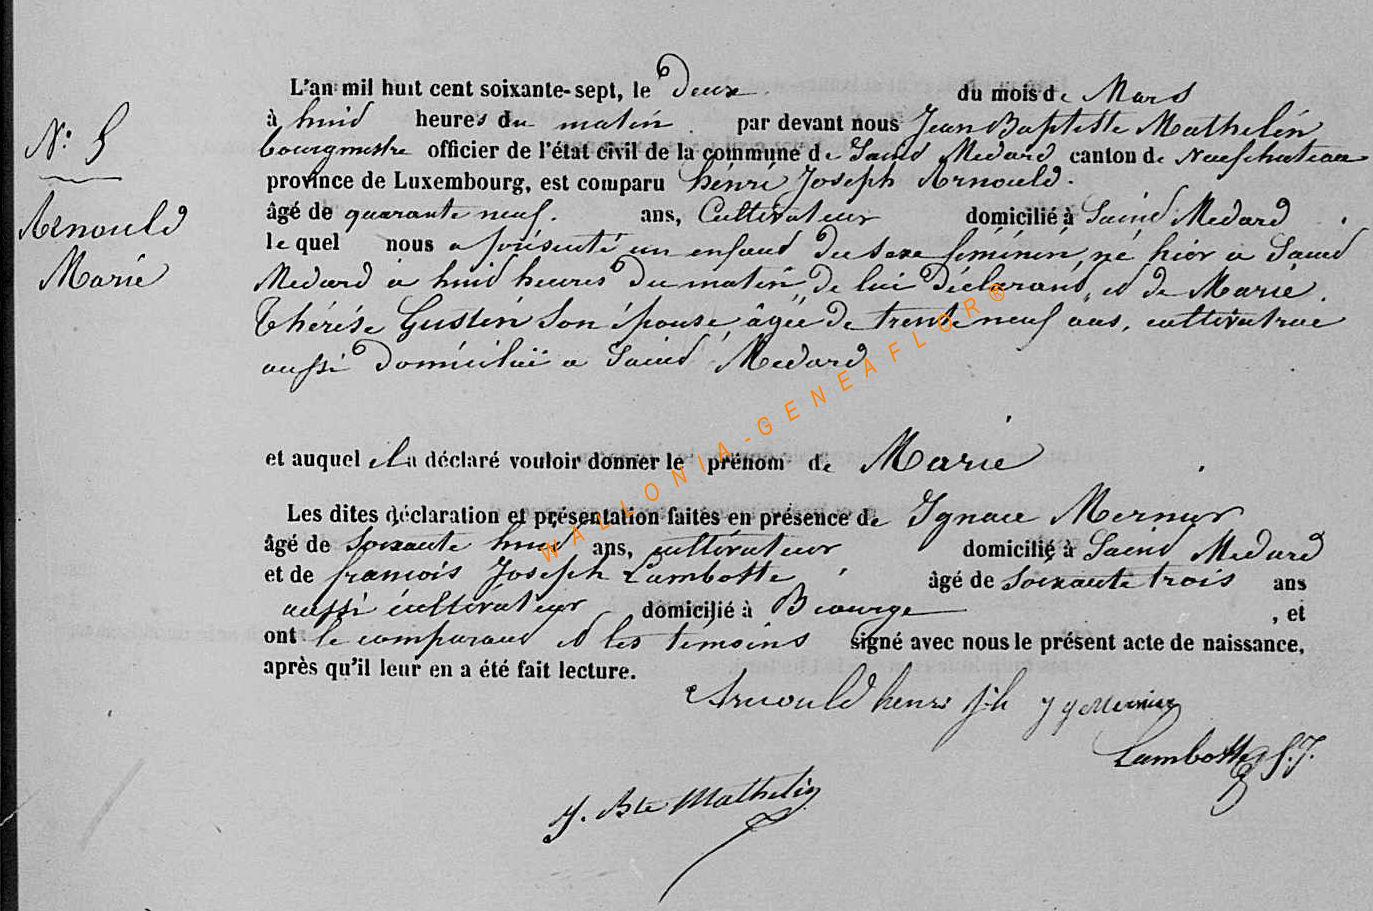 N: 5
Arnould
Marie
L'an mil huit cent soixante-sept, le deux du mois de Mars
à huid heures du matin par devant nous Jean Baptiste Mathelin
bourgmestre officier de l'état civil de la commune de Saind Medard canton de Neufchateau
province de Luxembourg, est comparu hénri Joseph Arnould.
âgé de quarante neuf. ans, Cultivateur domicilié à Saind Medard
lequel nous a présenté un enfand du sexe féminin, né hier a Saind
Medard à huid heures du matin de lui déclarand, et de Marie
Thérése Gustin Son épouse, âgée de trente neuf ans, cultivatrice
aussi domicilié a Saind Medard
et auquel il a déclaré vouloir donner le prénom de Marie
Les dites déclaration et présentation faites en présence de Ignace Mernier
âgé de Soixante huid ans, cultivateur domicilié à Saind Medard
et de francois Joseph Lambotte âgé de Soixante trois ans
aussi cultivateur domicilié à Biourge , et
ont le comparand et les témoins signé avec nous le présent acte de naissance,
après qu'il leur en a été fait lecture.
Arnould henri jph J g Mernier
Lambotte f. J.
J. Bte Mathelin
WALLONIA-GENEAFLOR®